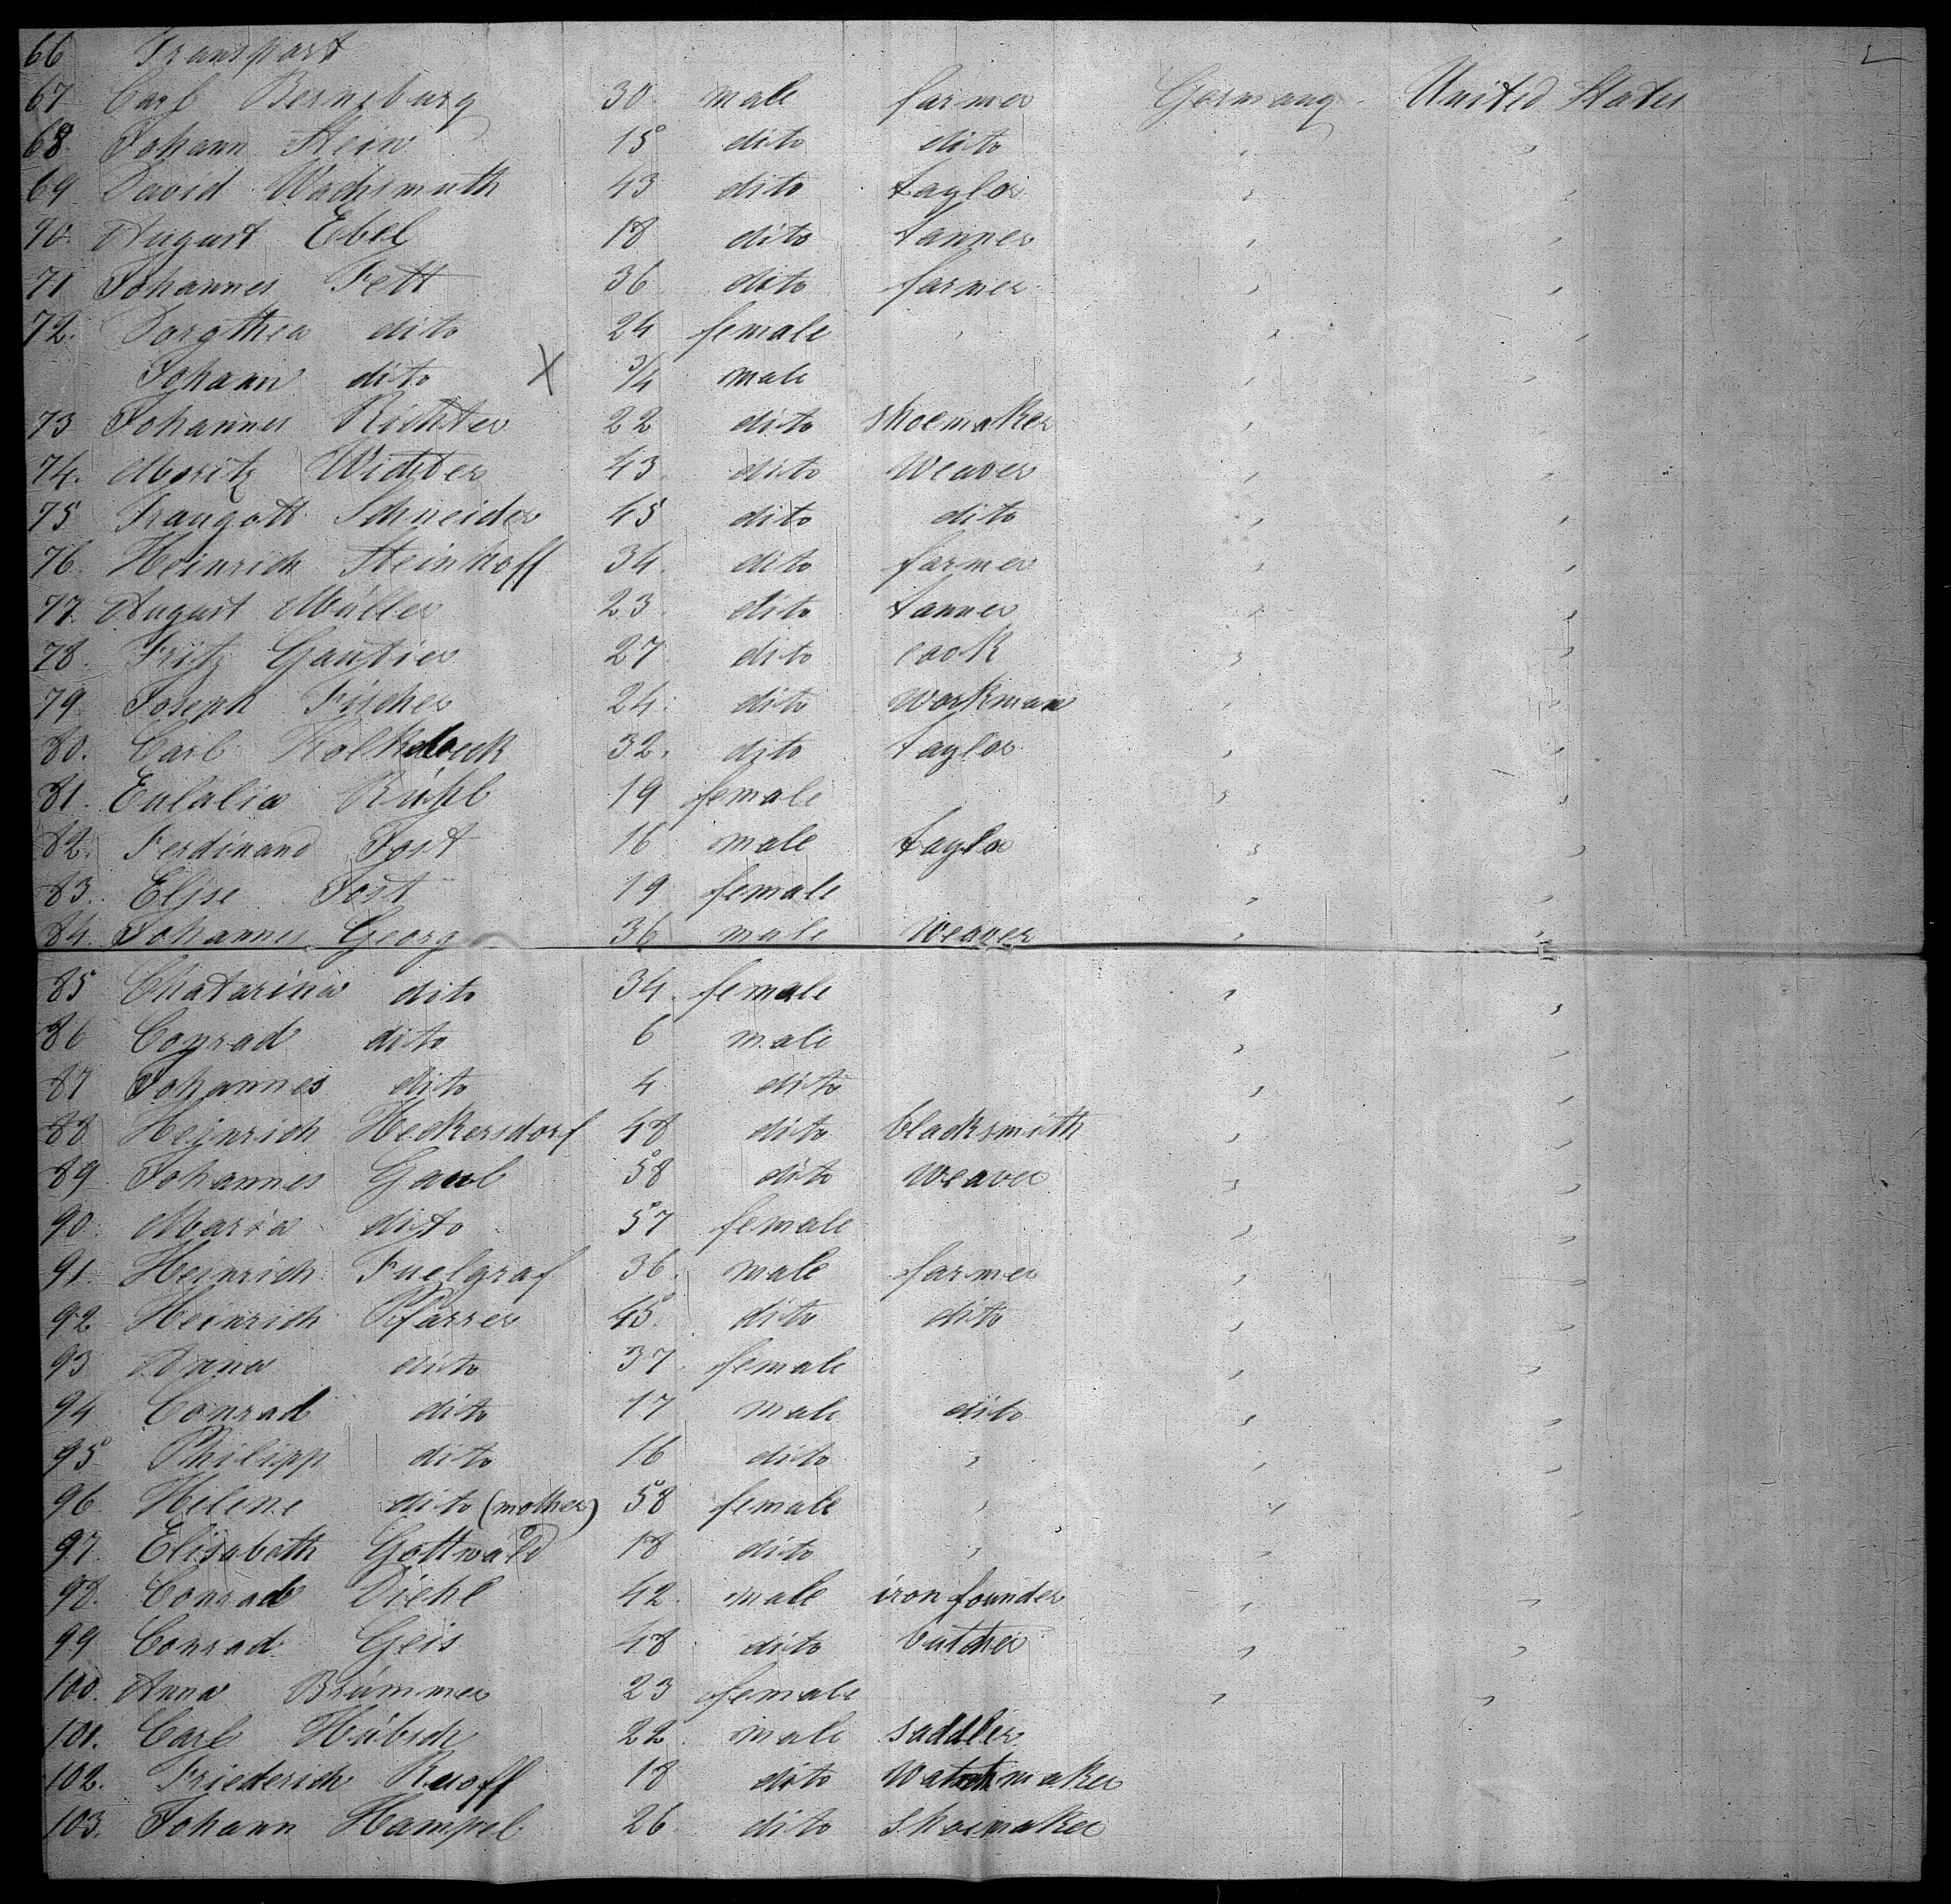 66 Transport
67 Carl Bernsburg 30 male farmer Germany United States
68. Johann Stein 15 dito dito " "
69 David Wachsmuth 43 dito taylor " "
70. August Ebel 18 dito tanner " "
71 Johannes Fett 36 dito farmer " "
72. Dorothea dito 24 female " " "
Johann dito X 3/4 male " "
73 Johannes Richter 22 dito shoemaker " "
74. Moritz Widder 43 dito weaver " "
75 Traugott Schneider 45 dito dito " "
76. Heinrich Steinhoff 34 dito farmer " "
77. August Müller 23 dito tanner " "
78. Fritz Gautier 27 dito cook " "
79 Joseph Fischer 24. dito workman " "
80. Carl 32. dito taylor " "
81. Eulalia Rühl 19 female " "
82. Ferdinand Jost 16 male taylor " "
83. Elise Jost 19 female " "
84. Johannes Georg 36 male weaver " "
85 Chatarina dito 34. female " "
86 Conrad dito 6 male " "
87 Johannes dito 4 dito " "
88 Heinrich Heckersdorf 48 dito blacksmith " "
89. Johannes Gaul 58 dito weaver " "
90. Maria dito 57 female " "
91. Heinrich Fuelgraf 36. male farmer " "
92 Heinrich Pfarrer 45. dito dito " "
93 Anna dito 37. female " "
94 Conrad dito 17 male dito " "
95 Philipp dito 16 dito " " "
96. Helene dito (mother) 58 female " " "
97. Elisabeth Gottwald 18 dito " " "
98. Conrad Diehl 42. male iron founder " "
99 Conrad Geis 48 dito butcher " "
100. Anna Brümmer 23 female " "
101. Carl Hübsch 22 male saddler
102. Friederich Ruoff 18 dito watchmaker
103. Johann Hampel 26. dito shoemaker